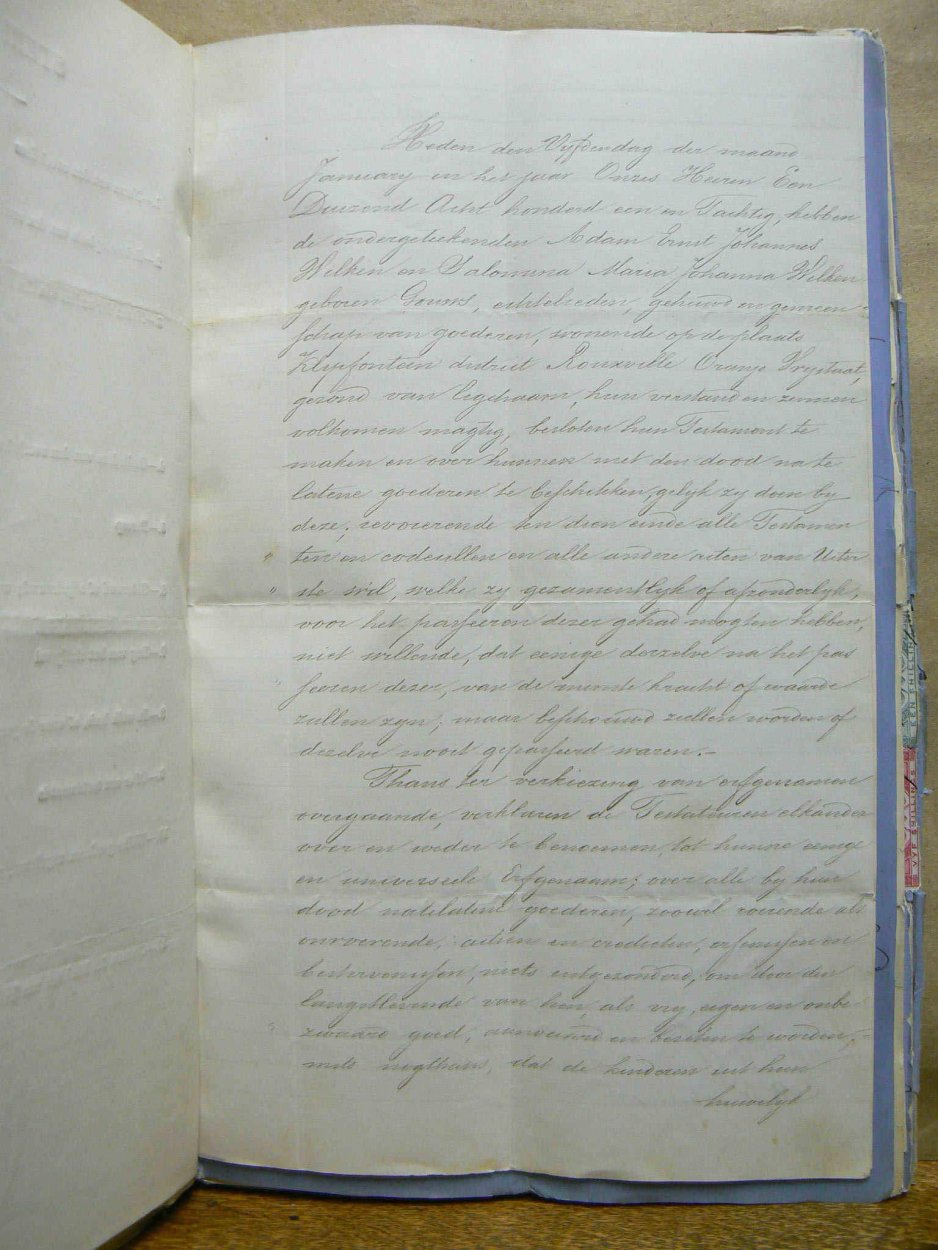 Heden den Vyfdendag der maand
January in het jaar Onzes Heeren Een
Duizend Acht honderd een en Tachtig, hebben
de ondergeteekenden Adam Ernst Johannes
Wilken en Salomina Maria Johanna Wilken
geboren Gouws, echtelieden, gehuwd en gemeen-
schap van goederen, wonende op de plaats
Klipfontein district Rouxville Oranje Vrystaat,
gezond van ligchaam, hun verstand en zinnen
volkomen magtig, besloten hun Testament te
maken en over hunnen met den dood na te
latene goederen te beschikken, gelyk zy doen by
deze; revoceerende ten dien einde alle Testamen
" ten en codecillen en alle andere acten van Uiter
" ste wil, welke zy gezamentlyk of afzonderlyk,
voor het passeeren dezer gehad mogten hebben,
niet willende, dat eenige derzelve na het pas
" seeren dezer, van de minste kracht of waarde
zullen zyn; maar beschouwd zullen worden of
dezelve nooit gepasseerd waren.–
Thans ter verkiezing van erfgenamen
overgaande, verklaren de Testateuren elkander
over en weder te benoemen, tot hunne eenige
en universeele Erfgenaam; over alle by hun
dood natelatene goederen, zoowel roerende als
onroerende, actien en crediten, erfenissen en
bestervenissen, niets uitgezonderd, om door den
langstlevende van hen, als vry, eigen en onbe
" zwaard goed, aanvaard en bezeten te worden,
mits nogthans, dat de kinderen uit hun
huwelyk
EEN SHILLING
VYF SHILLINGS